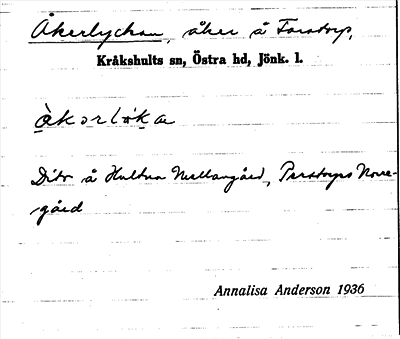 Åkerlyckan, åker å Forstorp,
Kråkshults sn, Östra hd, Jönk. l.
Dito å Hultna Mellangård, Perstorps Norre-
gård
Annalisa Anderson 1936